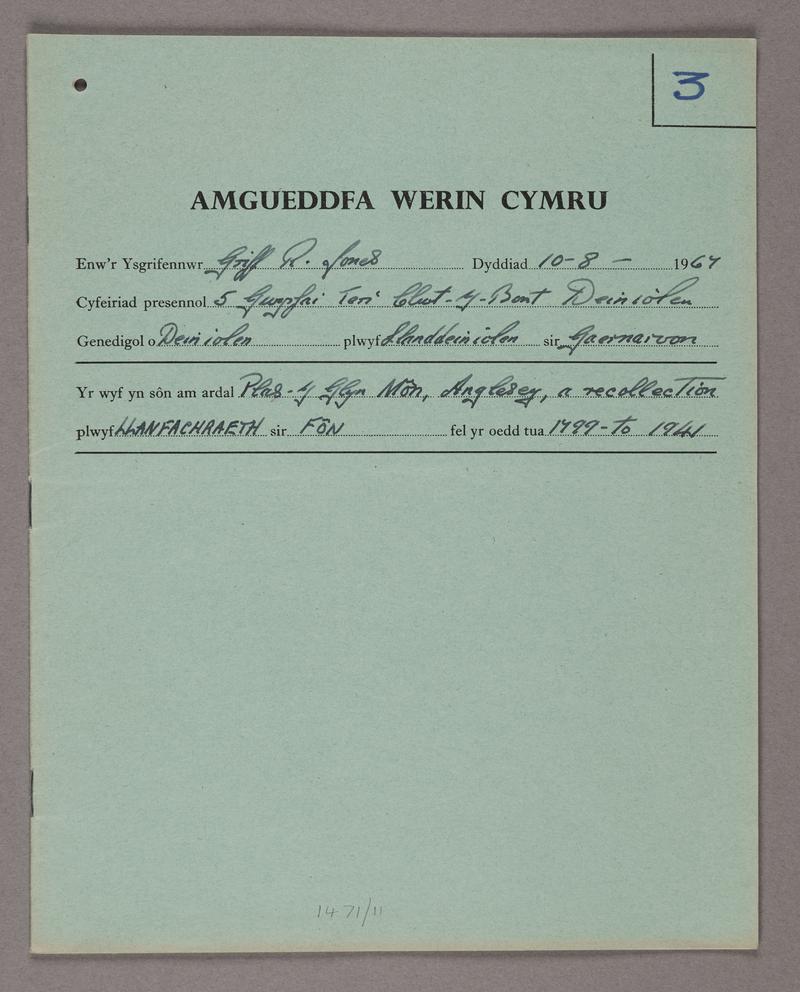 3
AMGUEDDFA WERIN CYMRU
Enw'r Ysgrifennwr Griff R. Jones Dyddiad 10-8- 1967
Cyfeiriad presennol 5 Terr Clwt-y-Bont Deiniolen
Genedigol o Deiniolen plwyf Llanddeiniolen sir Gaernarvon
Yr wyf yn sôn am ardal Plas-y Glyn Môn, Anglesey, a recollection
plwyf LLANFACHRAETH sir FÔN fel yr oedd tua 1799-to 1941
1471/11